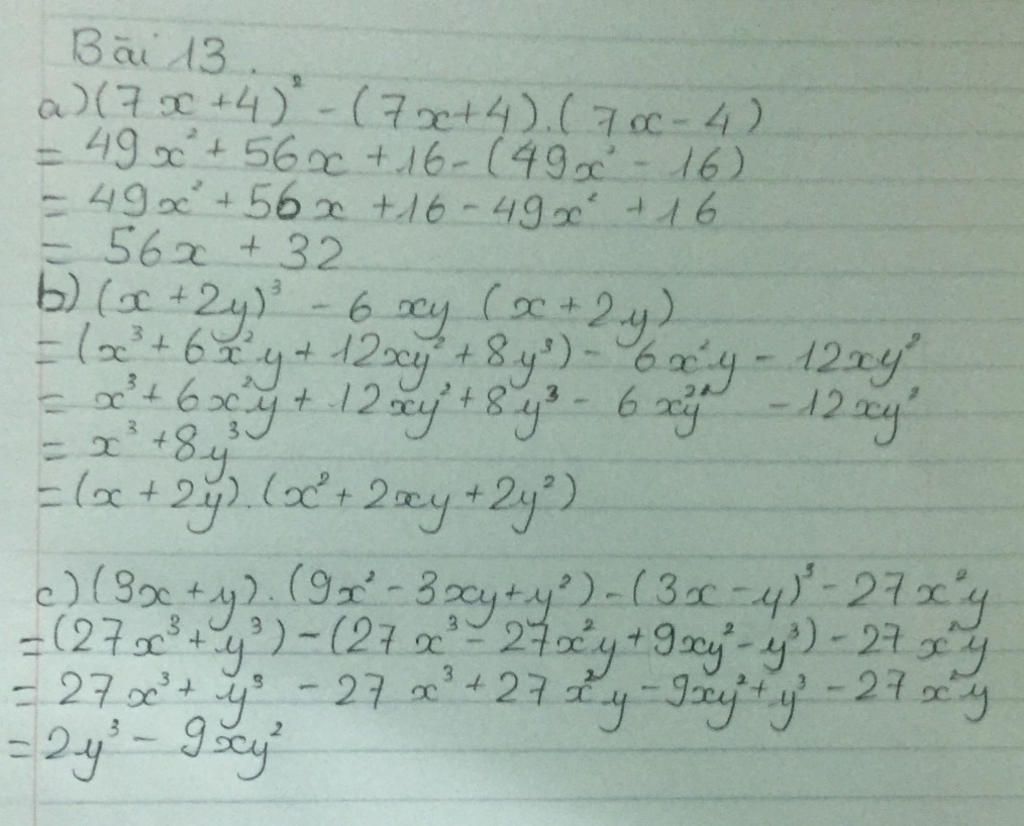 Bài 13.
a) (7x + 4)² - (7x + 4).(7x - 4)
= 49x² + 56x + 16 - (49x² - 16)
= 49x² + 56x + 16 - 49x² + 16
= 56x + 32
b) (x + 2y)³ - 6xy (x + 2y)
= (x³ + 6x²y + 12xy² + 8y³) - 6x²y - 12xy²
= x³ + 6x²y + 12xy² + 8y³ - 6x²y - 12xy²
= x³ + 8y³
= (x + 2y).(x² + 2xy + 2y²)
c) (3x + y).(9x² - 3xy + y²) - (3x - y)³ - 27x²y
= (27x³ + y³) - (27x³ - 27x²y + 9xy² - y³) - 27x²y
= 27x³ + y³ - 27x³ + 27x²y - 9xy² + y³ - 27x²y
= 2y³ - 9xy²